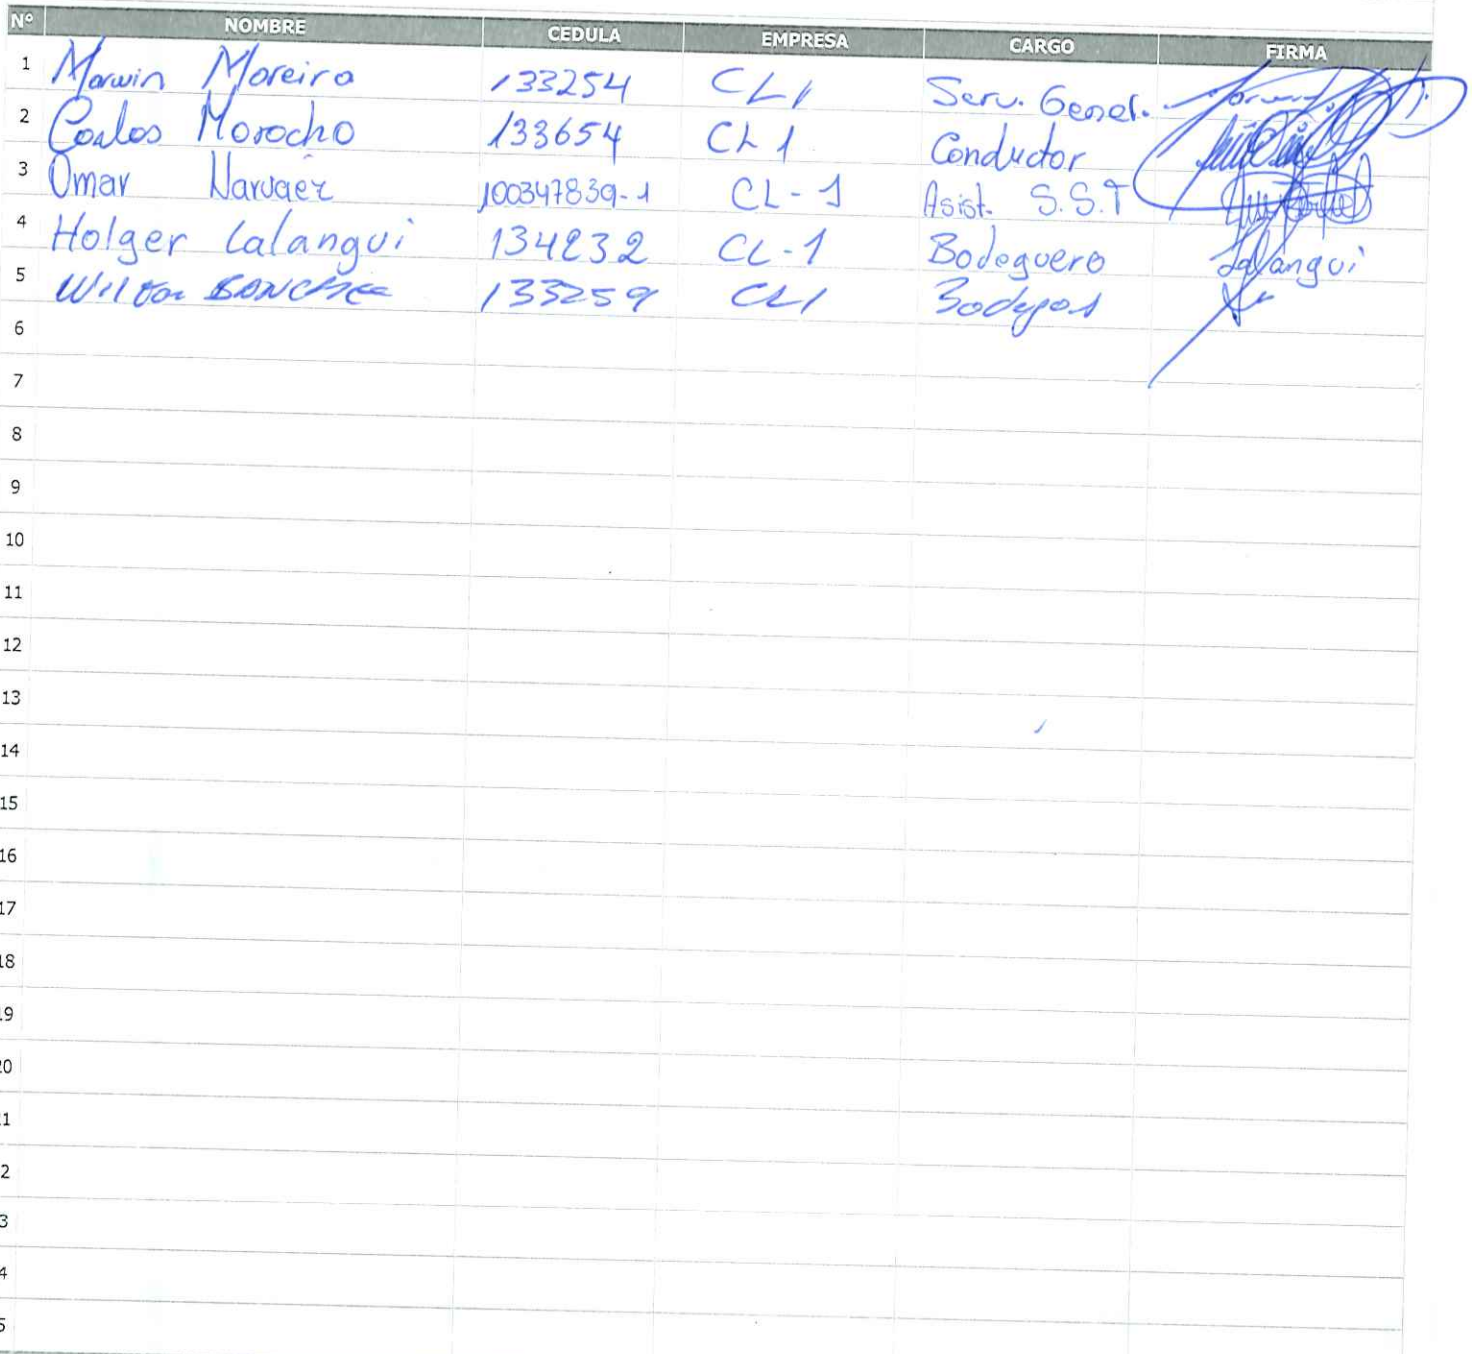 Nº NOMBRE CEDULA EMPRESA CARGO FIRMA
1 Marwin Moreira 133254 CL1 Serv. General.
2 Carlos Morocho 133654 CL1 Conductor
3 Omar Narvaez 100347839-1 CL-1 Asist. S.S.T
4 Holger Lalangui 134232 CL-1 Bodeguero Lalangui
5 133259 CL1 Bodegas
6
7
8
9
10
11
12
13
14
15
16
17
18
19
20
1
2
3
4
5